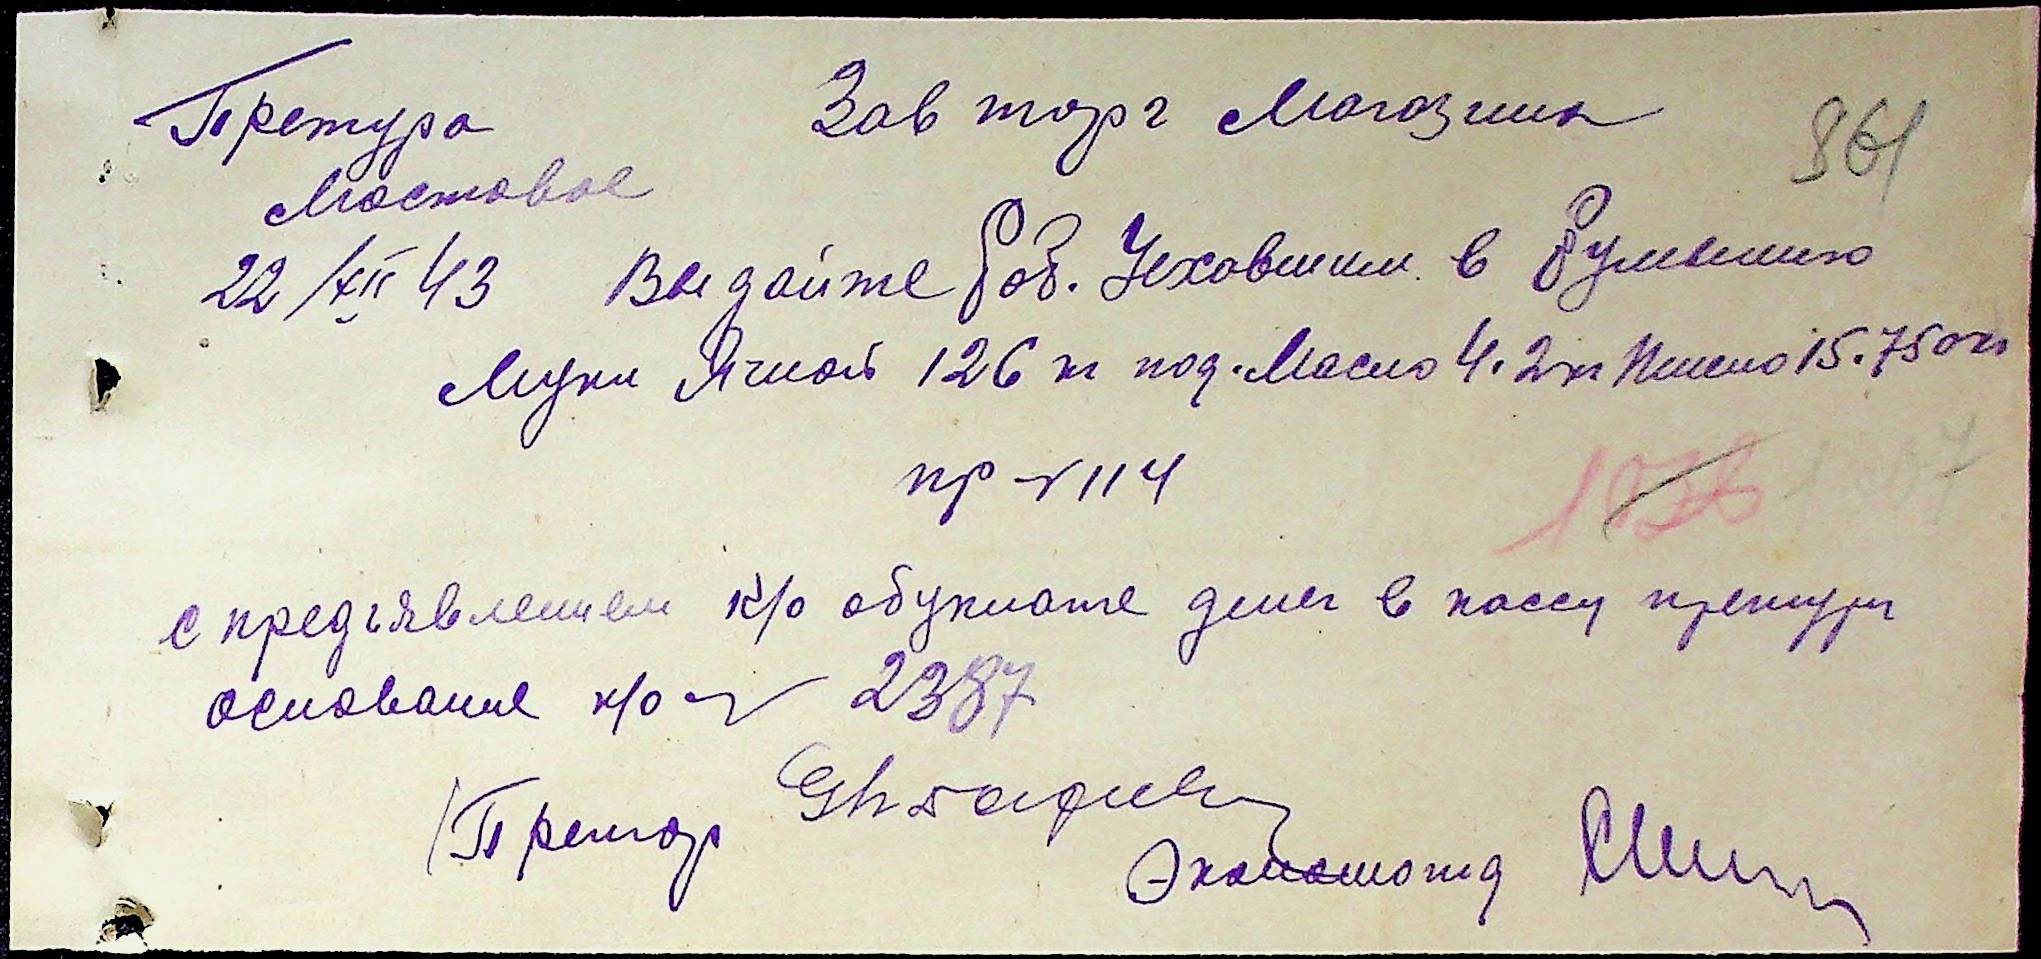 Претура Зав торг Магазина 861
Мостовое
22/XII 43 Выдайте Раб. Уехавшим в Румынию
Муки Ячной 126 кг под. Масло 4.2 кг Пшено 15.750 кг
пр № 114
1207
с предъявлением к/о об уплате денег в кассу претуры
основание к/о № 2387
Претор
Экономотд